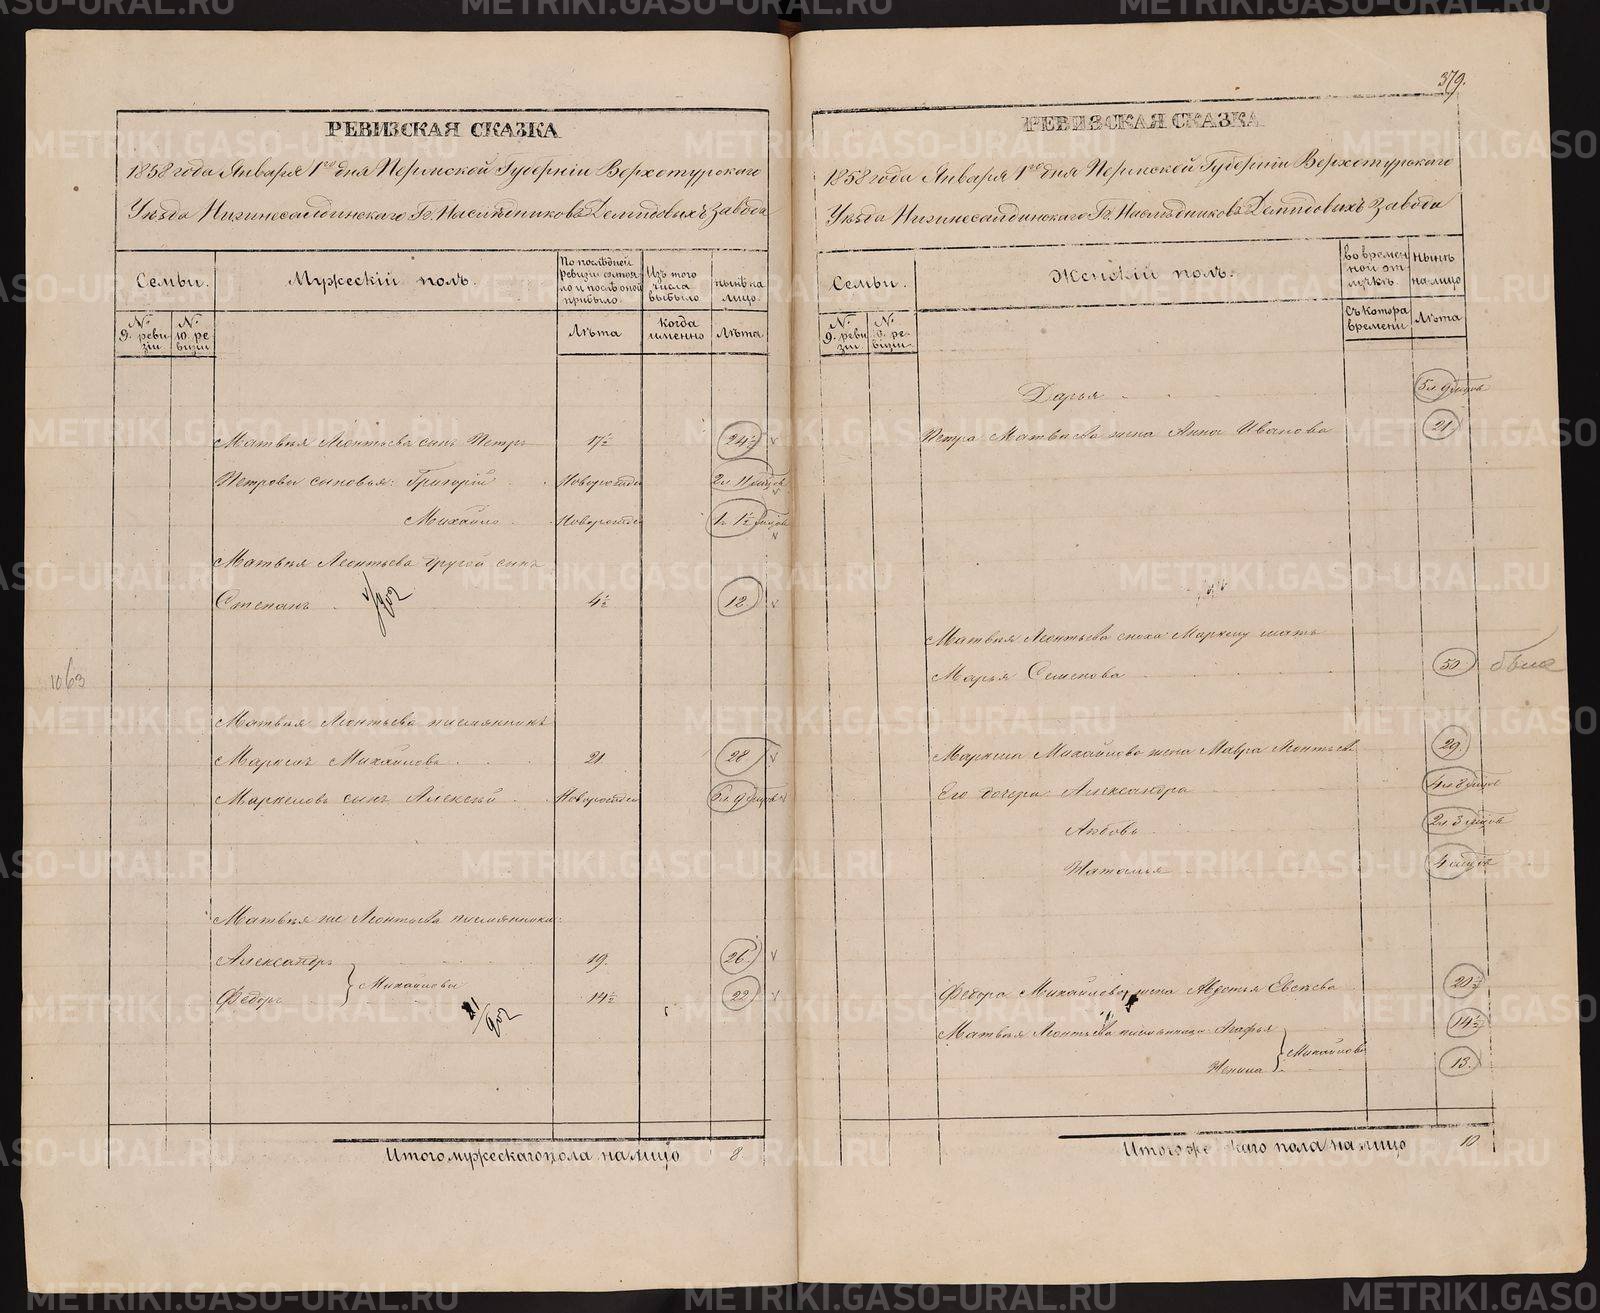 РЕВИЗСКАЯ СКАЗКА
1858 года Января 1го дня Пермской Губерніи Верхотурскаго
Уѣзда Нижнесалдинскаго Гг. Наслѣдниковъ Демидовыхъ Завода
Семьи.
Мужескій полъ.
По последней ревизіи состояло и послѣ оной прибыло.
Изъ того числа выбыло.
нынѣ на лицо.
№ 9. ревизіи
№ 10. ревизіи
Лѣта
Когда именно
Лѣта
Матвея Леонтьева сынъ Петръ 17½ 24½
Петровы сыновья: Григорій Новорожден 2 л 11 мѣсцов
Михайло Новорожден 1 г 1½ мѣсцов
Матвея Леонтьева другой сынъ
Степанъ 4½ 12
1063
Матвея Леонтьева племянникъ
Маркелъ Михайловъ 21 28
Маркеловъ сынъ Алексѣй Новорожден 6 л 9 мѣсцов
Матвея же Леонтьева племянники:
Александръ 19. 26.
Федоръ Михайловы 14½ 22
Итого мужескаго пола на лицо 8
379.
РЕВИЗСКАЯ СКАЗКА
1858 года Января 1го дня Пермской Губерніи Верхотурскаго
Уѣзда Нижнесалдинскаго Гг. Наслѣдниковъ Демидовыхъ Завода
Семьи.
Женскій полъ.
во временной отлучкѣ.
нынѣ на лицо
№ 9. ревизіи
№ ревизіи
Съ котора времени
Лѣта
Дарья 5 л 9 мѣсцов
Петра Матвеева жена Анна Иванова 21
Матвея Леонтьева сноха Маркелу мать
Марья Семенова 50
Маркела Михайлова жена Мавра Леонтьева 29.
Его дочери: Александра 4 л 8 мѣсцов
Любовь 2 л 3 мѣсцов
Наталья 4 мѣсцов
Федора Михайлова жена Авдотья Евсѣева 20½
Матвея Леонтьева племянницы: Агафья 14½
Михайловы 13.
Итого же каго пола на лицо 10
METRIKI.GASO-URAL.RU